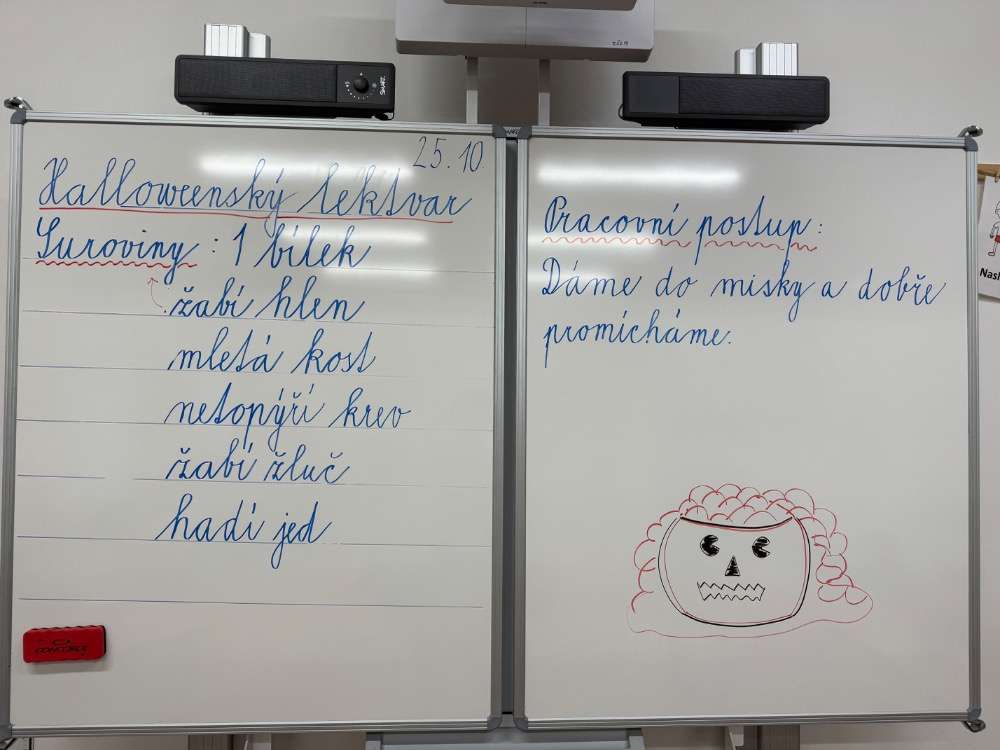 25.10
Halloweenský lektvar
Suroviny : 1 bílek
žabí hlen
mletá kost
netopýří krev
žabí žluč
hadí jed
Pracovní postup:
Dáme do misky a dobře
promícháme.
CONCORDE
SMART
Nasl